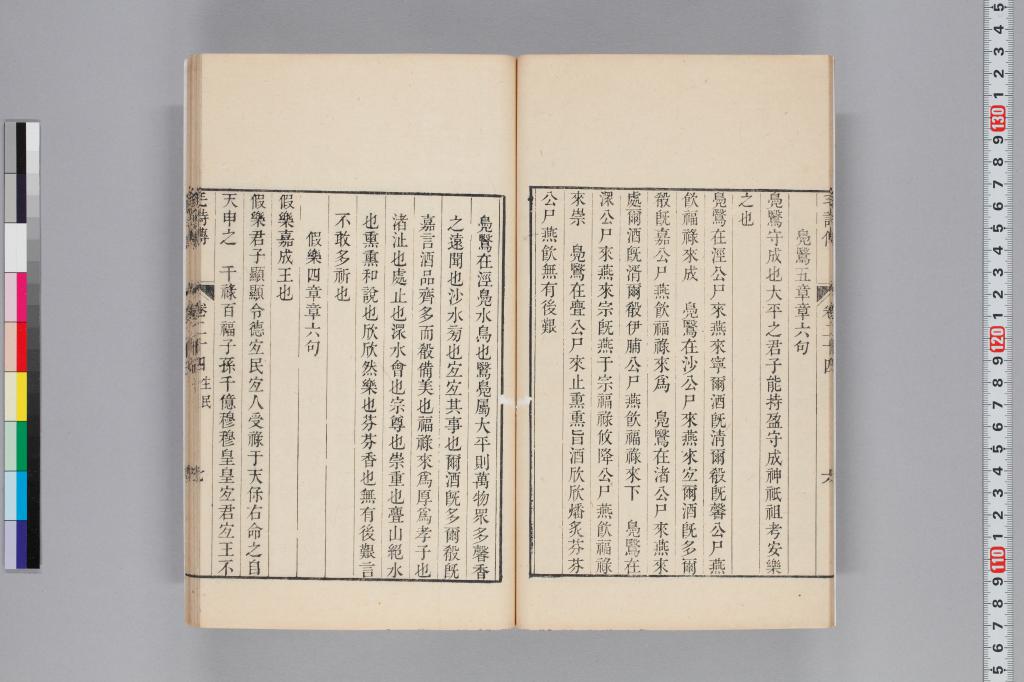 鳧鷖五章章六句
鳧鷖守成也大平之君子能持盈守成神祇祖考安樂
之也
鳧鷖在涇公尸來燕來寧爾酒旣清爾殽旣馨公尸燕
飮福祿來成　鳧鷖在沙公尸來燕來宐爾酒旣多爾
殽旣嘉公尸燕飮福祿來爲　鳧鷖在渚公尸來燕來
處爾酒旣湑爾殽伊脯公尸燕飮福祿來下　鳧鷖在
潨公尸來燕來宗旣燕于宗福祿攸降公尸燕飮福祿
來崇　鳧鷖在亹公尸來止熏熏旨酒欣欣燔炙芬芬
公尸燕飮無有後艱
鳧鷖在涇鳧水鳥也鷖鳧屬大平則萬物眾多馨香
之遠聞也沙水㫄也宐宐其事也爾酒旣多爾殽旣
嘉言酒品齊多而殽備美也福祿來爲厚爲孝子也
渚沚也處止也潨水會也宗尊也崇重也亹山絕水
也熏熏和說也欣欣然樂也芬芬香也無有後艱言
不敢多祈也
假樂四章章六句
假樂嘉成王也
假樂君子顯顯令德宐民宐人受祿于天保右命之自
天申之　干祿百福子孫千億穆穆皇皇宐君宐王不
毛詩傳　卷二十四　生民